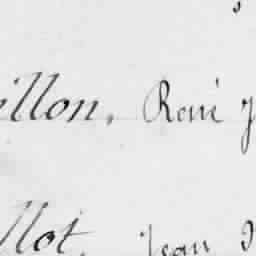 illon, René J
llot, Jean